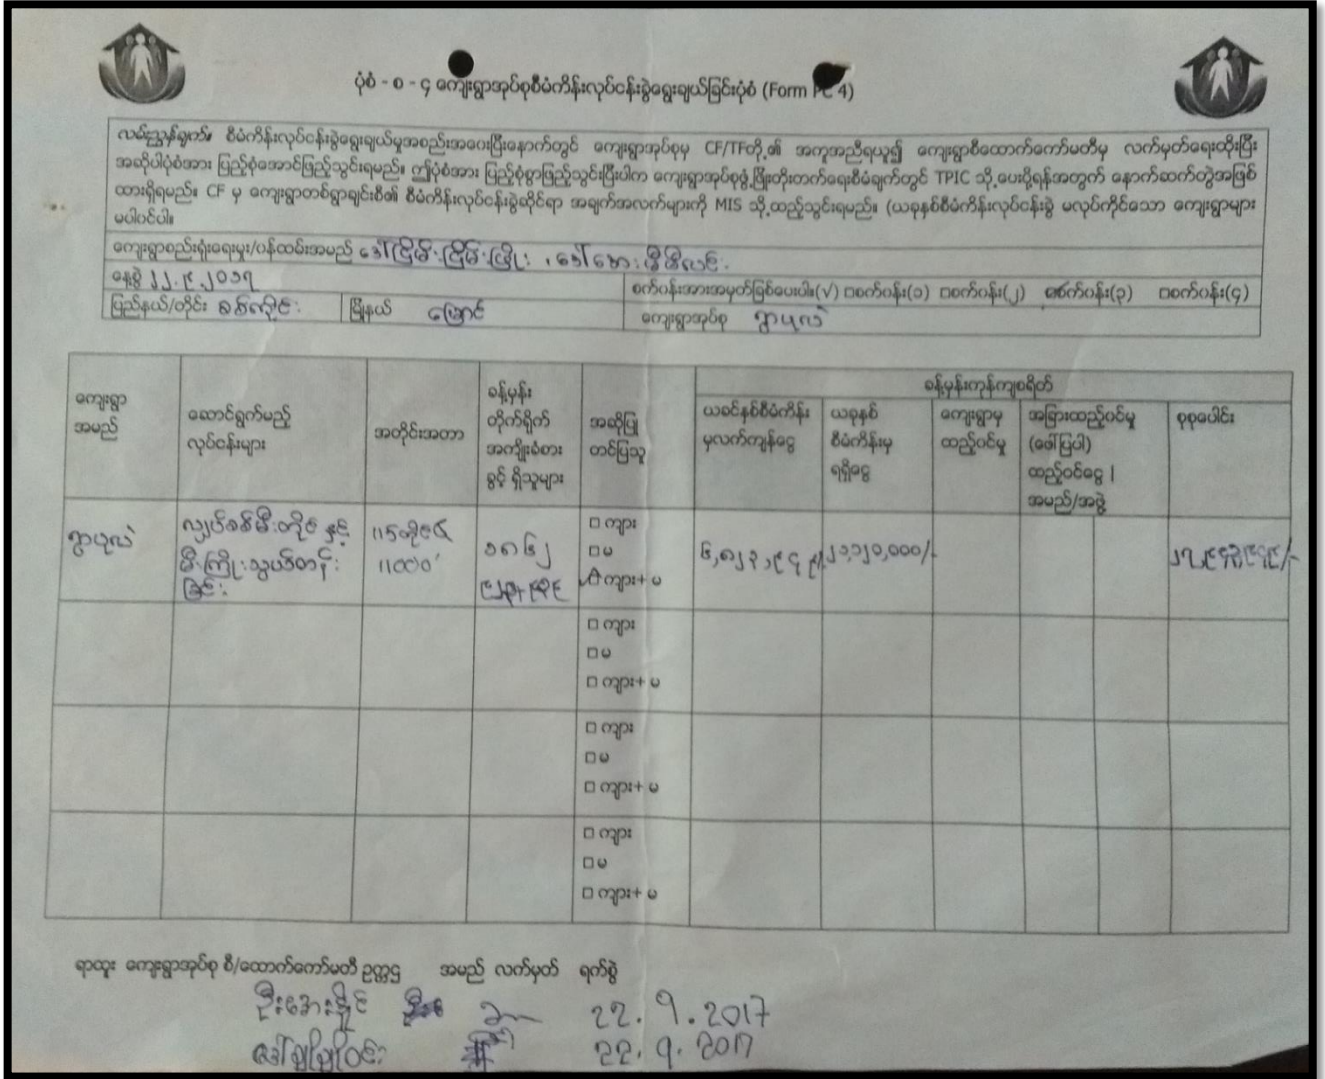 ပုံစံ - စ - ၄ ကျေးရွာအုပ်စုစီမံကိန်းလုပ်ငန်းခွဲရွေးချယ်ခြင်းပုံစံ (Form PC 4)
လမ်းညွှန်ချက်။ စီမံကိန်းလုပ်ငန်းခွဲရွေးချယ်မှုအစည်းအဝေးပြီးနောက်တွင် ကျေးရွာအုပ်စုမှ CF/TFတို့၏ အကူအညီရယူ၍ ကျေးရွာစီထောက်ကော်မတီမှ လက်မှတ်ရေးထိုးပြီး
အဆိုပါပုံစံအား ပြည့်စုံအောင်ဖြည့်သွင်းရမည်။ ဤပုံစံအား ပြည့်စုံစွာဖြည့်သွင်းပြီးပါက ကျေးရွာအုပ်စုဖွံ့ဖြိုးတိုးတက်ရေးစီမံချက်တွင် TPIC သို့ပေးပို့ရန်အတွက် နောက်ဆက်တွဲအဖြစ်
ထားရှိရမည်။ CF မှ ကျေးရွာတစ်ရွာချင်းစီ၏ စီမံကိန်းလုပ်ငန်းခွဲဆိုင်ရာ အချက်အလက်များကို MIS သို့ထည့်သွင်းရမည်။ (ယခုနှစ်စီမံကိန်းလုပ်ငန်းခွဲ မလုပ်ကိုင်သော ကျေးရွာများ
မပါဝင်ပါ။
ကျေးရွာစည်းရုံးရေးမှူး/ဝန်ထမ်းအမည် ဒေါ်ငြိမ်းငြိမ်းဖြိုး ၊ ဒေါ်အေးမီမီလင်း
နေ့စွဲ ၂၂.၉.၂၀၁၇ စက်ဝန်းအားအမှတ်ခြစ်ပေးပါ။(√) □စက်ဝန်း(၁) □စက်ဝန်း(၂) စက်ဝန်း(၃) □စက်ဝန်း(၄)
ပြည်နယ်/တိုင်း စစ်ကိုင်း မြို့နယ် မြောင် ကျေးရွာအုပ်စု ရွာပုလဲ
ခန့်မှန်းကုန်ကျစရိတ်
ကျေးရွာ အမည်
ဆောင်ရွက်မည့် လုပ်ငန်းများ
အတိုင်းအတာ
ခန့်မှန်း တိုက်ရိုက် အကျိုးခံစား ခွင့် ရှိသူများ
အဆိုပြု တင်ပြသူ
ယခင်နှစ်စီမံကိန်း မှလက်ကျန်ငွေ
ယခုနှစ် စီမံကိန်းမှ ရရှိငွေ
ကျေးရွာမှ ထည့်ဝင်မှု
အခြားထည့်ဝင်မှု (ဖော်ပြပါ) ထည့်ဝင်ငွေ | အမည်/အဖွဲ့
စုစုပေါင်း
ရွာပုလဲ
လျှပ်စစ်မီးတိုင် နှင့်
မီးကြိုးသွယ်တန်း
ခြင်း
115တိုင်
11000'
၁၈၆၂
□ ကျား
□ မ
ကျား+ မ
၆,၈၂၃,၉၄၉/-
၂၁,၁၂၀,၀၀၀/-
၂၇,၉၄၃,၉၄၉/-
□ ကျား
□ မ
□ ကျား+ မ
□ ကျား
□ မ
□ ကျား+ မ
□ ကျား
□ မ
□ ကျား+ မ
ရာထူး ကျေးရွာအုပ်စု စီ/ထောက်ကော်မတီ ဥက္ကဌ အမည် လက်မှတ် ရက်စွဲ
ဦးအေးနှိုင် 22.9.2017
22.9.2017